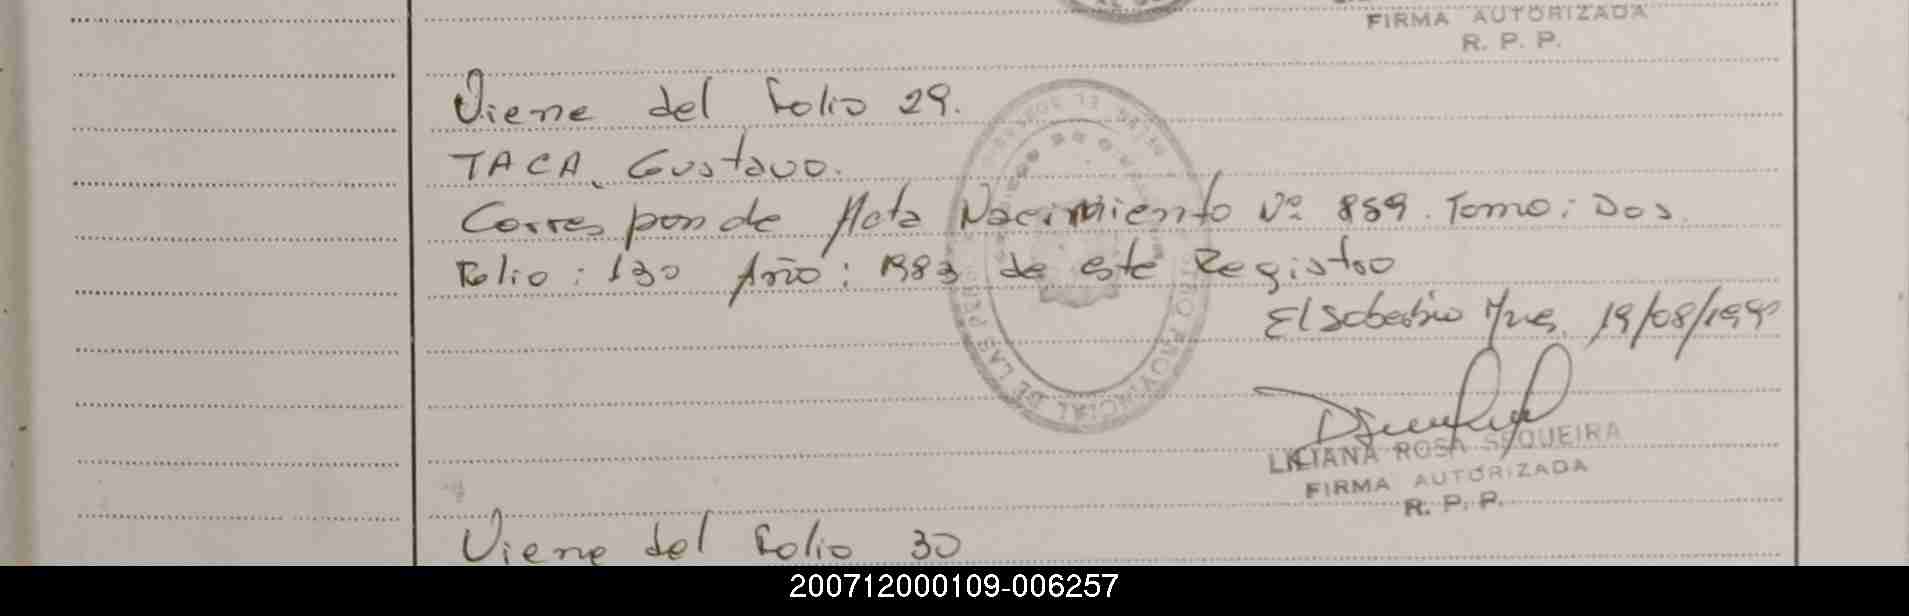 FIRMA AUTORIZADA
R. P. P.
Viene del folio 29.
TACA, Gustavo.
Corresponde Acta Nacimiento Nº 859. Tomo: Dos.
Folio: 130 Año: 1983 de este Registro
El Soberbio Mnes, 19/08/199
LILIANA ROSA SEQUEIRA
FIRMA AUTORIZADA
R. P. P.
PROVINCIAL DE LAS
Viene del folio 30
200712000109-006257